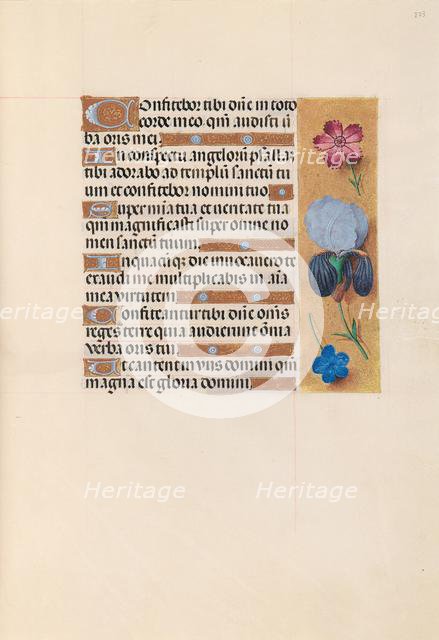 223
Confitebor tibi dñe in toto
corde meo qm̃ audisti ũ
ba oris mei
In conspectu angeloꝝ psallā
tibi adorabo ad templũ sanctũ tu
um et confitebor nomini tuo
Super mĩa tua et ueritate tua
qm̃ magnificasti super omne no
men sanctũ tuum
In quacũqꝫ die inuocauero te
exaudi me multiplicabis in aĩa
mea virtutem
Confiteantur tibi dñe oẽs
reges terre quia audierunt oĩa
verba oris tui
Et cantent in viis domini qm̃
magna est gloria domini
Heritage
Heritage
Heritage
Heritage
Heritage
Heritage